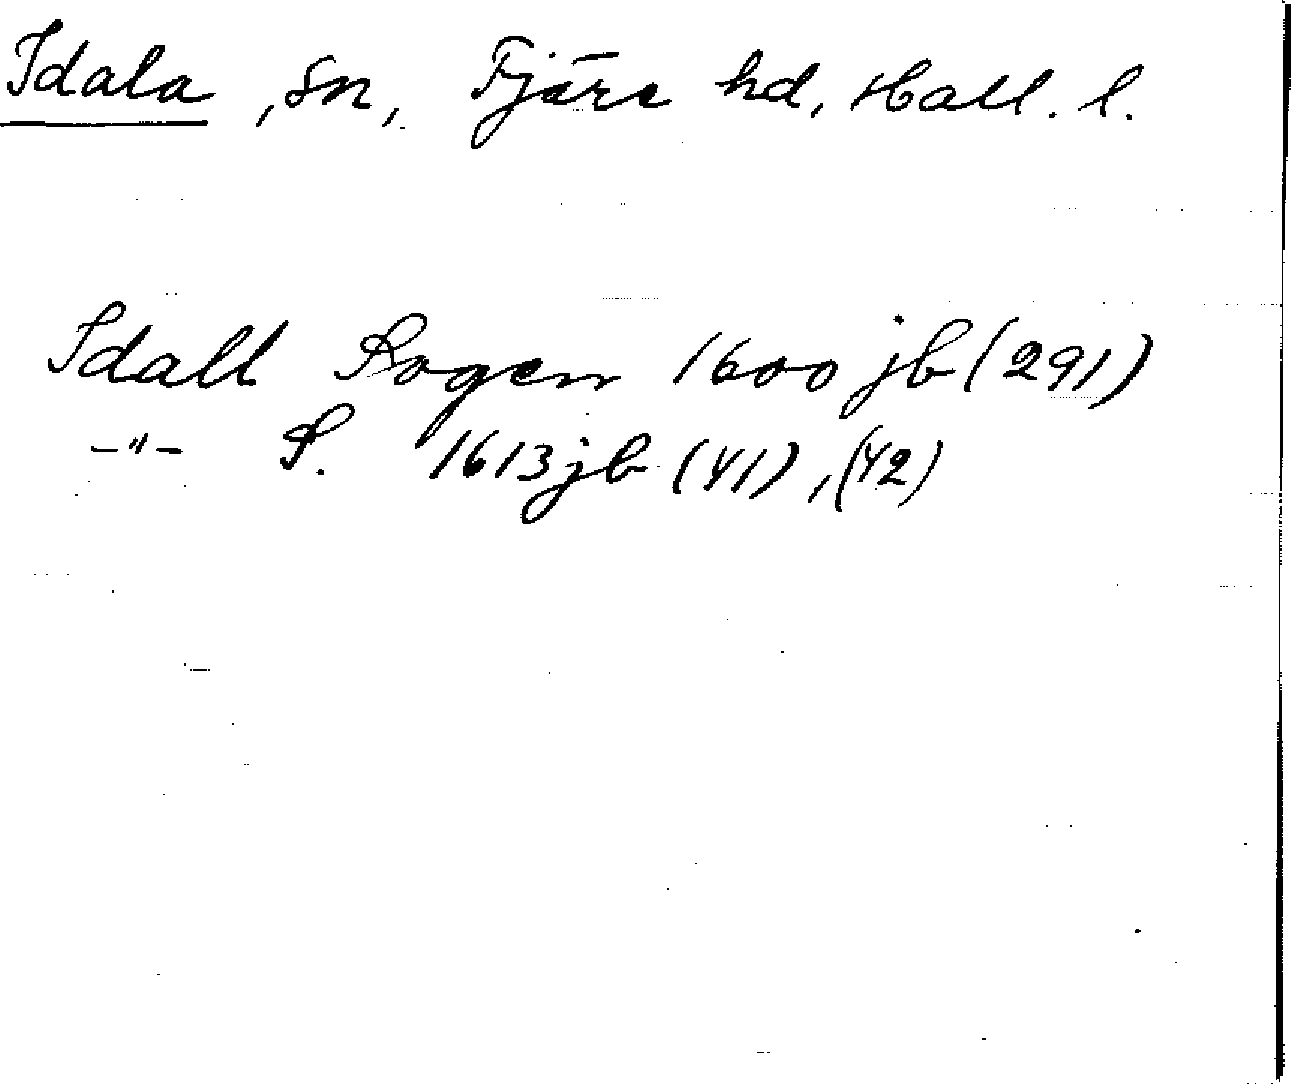 Idala, sn, Fjäre hd, Hall. l.
Idall Sogen 1600 jb (291)
-"- S. 1613 jb (41), (42)